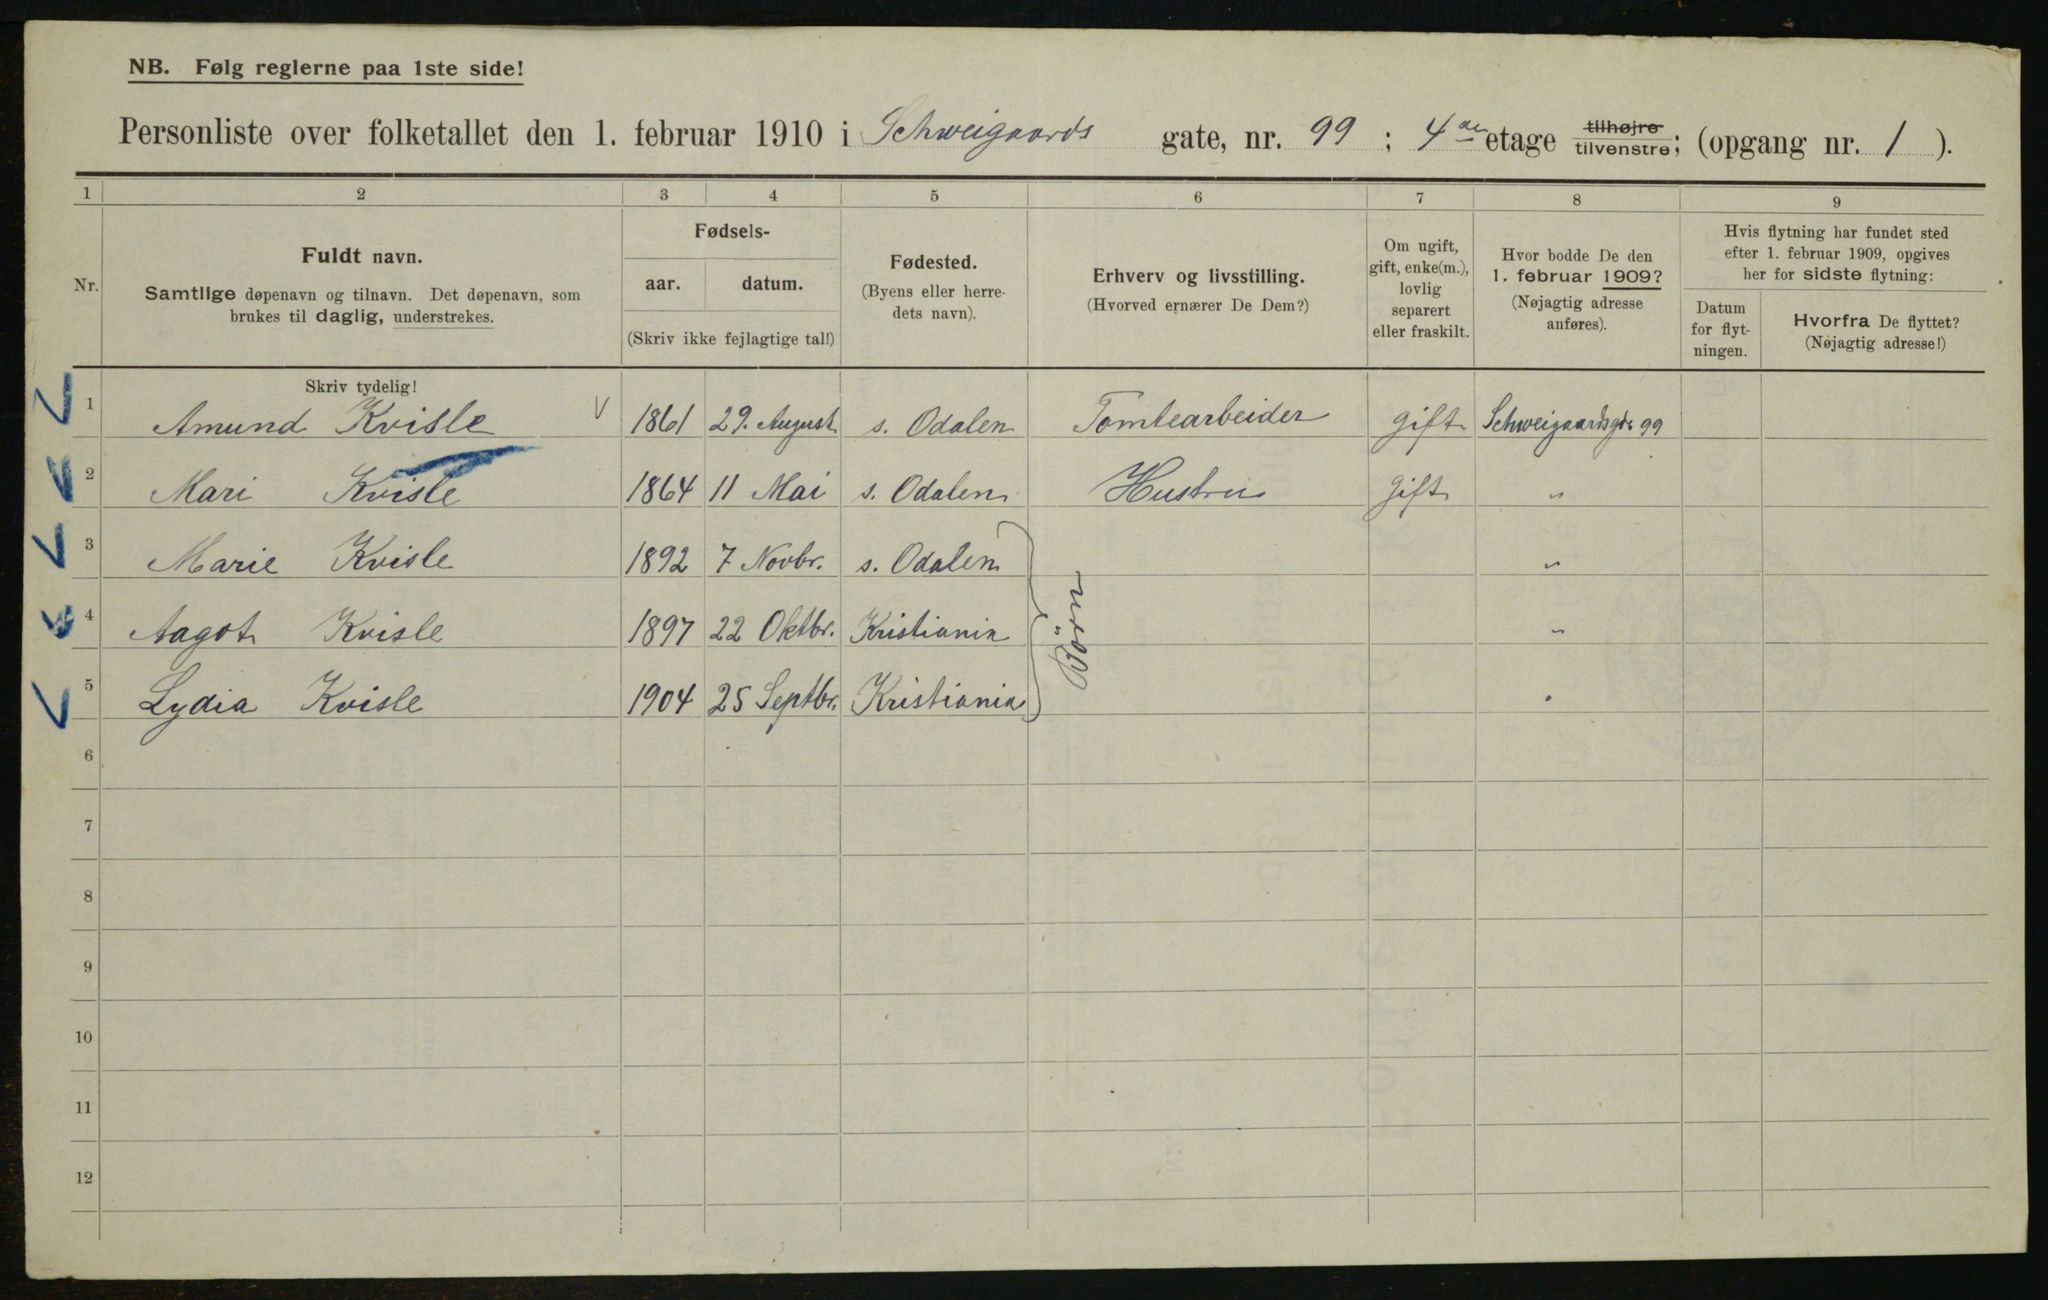 NB. Følg reglerne paa 1ste side!
Personliste over folketallet den 1. februar 1910 i Schweigaards gate, nr. 99 ; 4de etage tilhøjre tilvenstre; (opgang nr. 1 ).
1 2 3 4 5 6 7 8 9
Nr.
Fuldt navn.
Samtlige døpenavn og tilnavn. Det døpenavn, som
brukes til daglig, understrekes.
Fødsels-
aar. datum.
(Skriv ikke fejlagtige tal!)
Fødested.
(Byens eller herre-
dets navn).
Erhverv og livsstilling.
(Hvorved ernærer De Dem?)
Om ugift,
gift, enke(m.),
lovlig
separert
eller fraskilt.
Hvor bodde De den
1. februar 1909?
(Nøjagtig adresse
anføres).
Hvis flytning har fundet sted
efter 1. februar 1909, opgives
her for sidste flytning:
Datum
for flyt-
ningen.
Hvorfra De flyttet?
(Nøjagtig adresse!)
Skriv tydelig!
1 Amund Kvisle 1861 29. August s. Odalen Tomtearbeider gift Schweigaardsgd. 99
2 Mari Kvisle 1864 11 Mai s. Odalen Hustru gift "
3 Marie Kvisle 1892 7 Novbr. s. Odalen "
4 Aagot Kvisle 1897 22 Oktbr. Kristiania "
5 Lydia Kvisle 1904 25 Septbr. Kristiania "
Börn
6
7
8
9
10
11
12